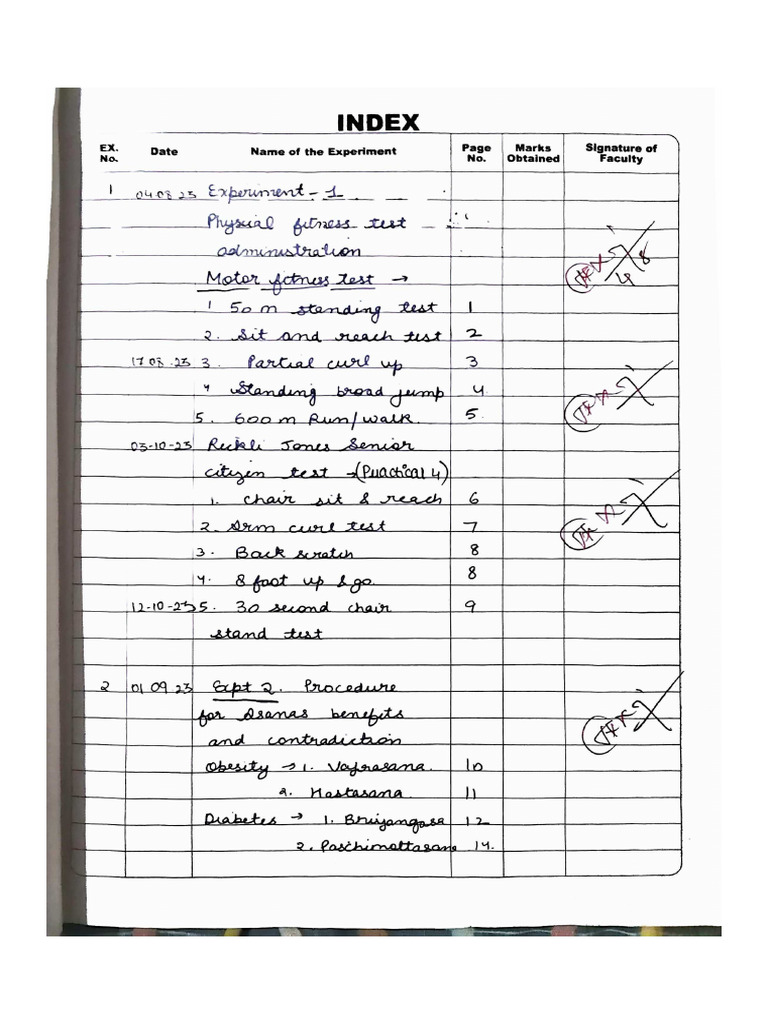 INDEX
EX. No. Date Name of the Experiment Page No. Marks Obtained Signature of Faculty
1 04.08.23 Experiment - 1
Physical fitness test
administration
Motor fitness test →
1 50 m standing test 1
2. Sit and reach test 2
17.08.23 3. Partial curl up 3
4 Standing broad jump 4
5. 600 m Run/walk. 5.
03-10-23 Rickli Jones Senior
citizen test → (Practical 4)
1. chair sit & reach 6
2. Arm curl test 7
3. Back scratch 8
4. 8 foot up & go. 8
12-10-23 5. 30 second chair 9
stand test
2 01 09 23 Expt 2. Procedure
for Asanas benefits
and contradiction
Obesity → 1. Vajrasana. 10
2. Hastasana. 11
Diabetes → 1. Bhujangasa 12
2. Paschimottasana 14.